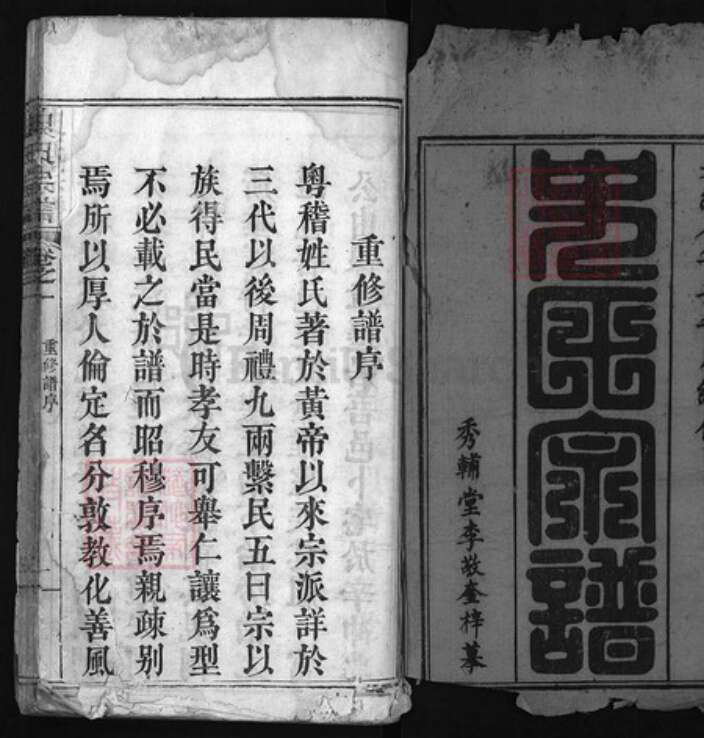 宗譜
秀輔堂李敬奎梓摹
重修譜序
粵稽姓氏著於黃帝以來宗派詳於
三代以後周禮九兩繫民五曰宗以
族得民當是時孝友可舉仁讓為型
不必載之於譜而昭穆序焉親疎别
焉所以厚人倫定名分敦教化善風
宗譜
卷之一
重修譜序